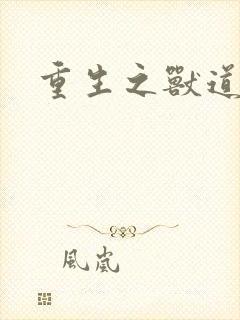 重生之獸道
風嵐